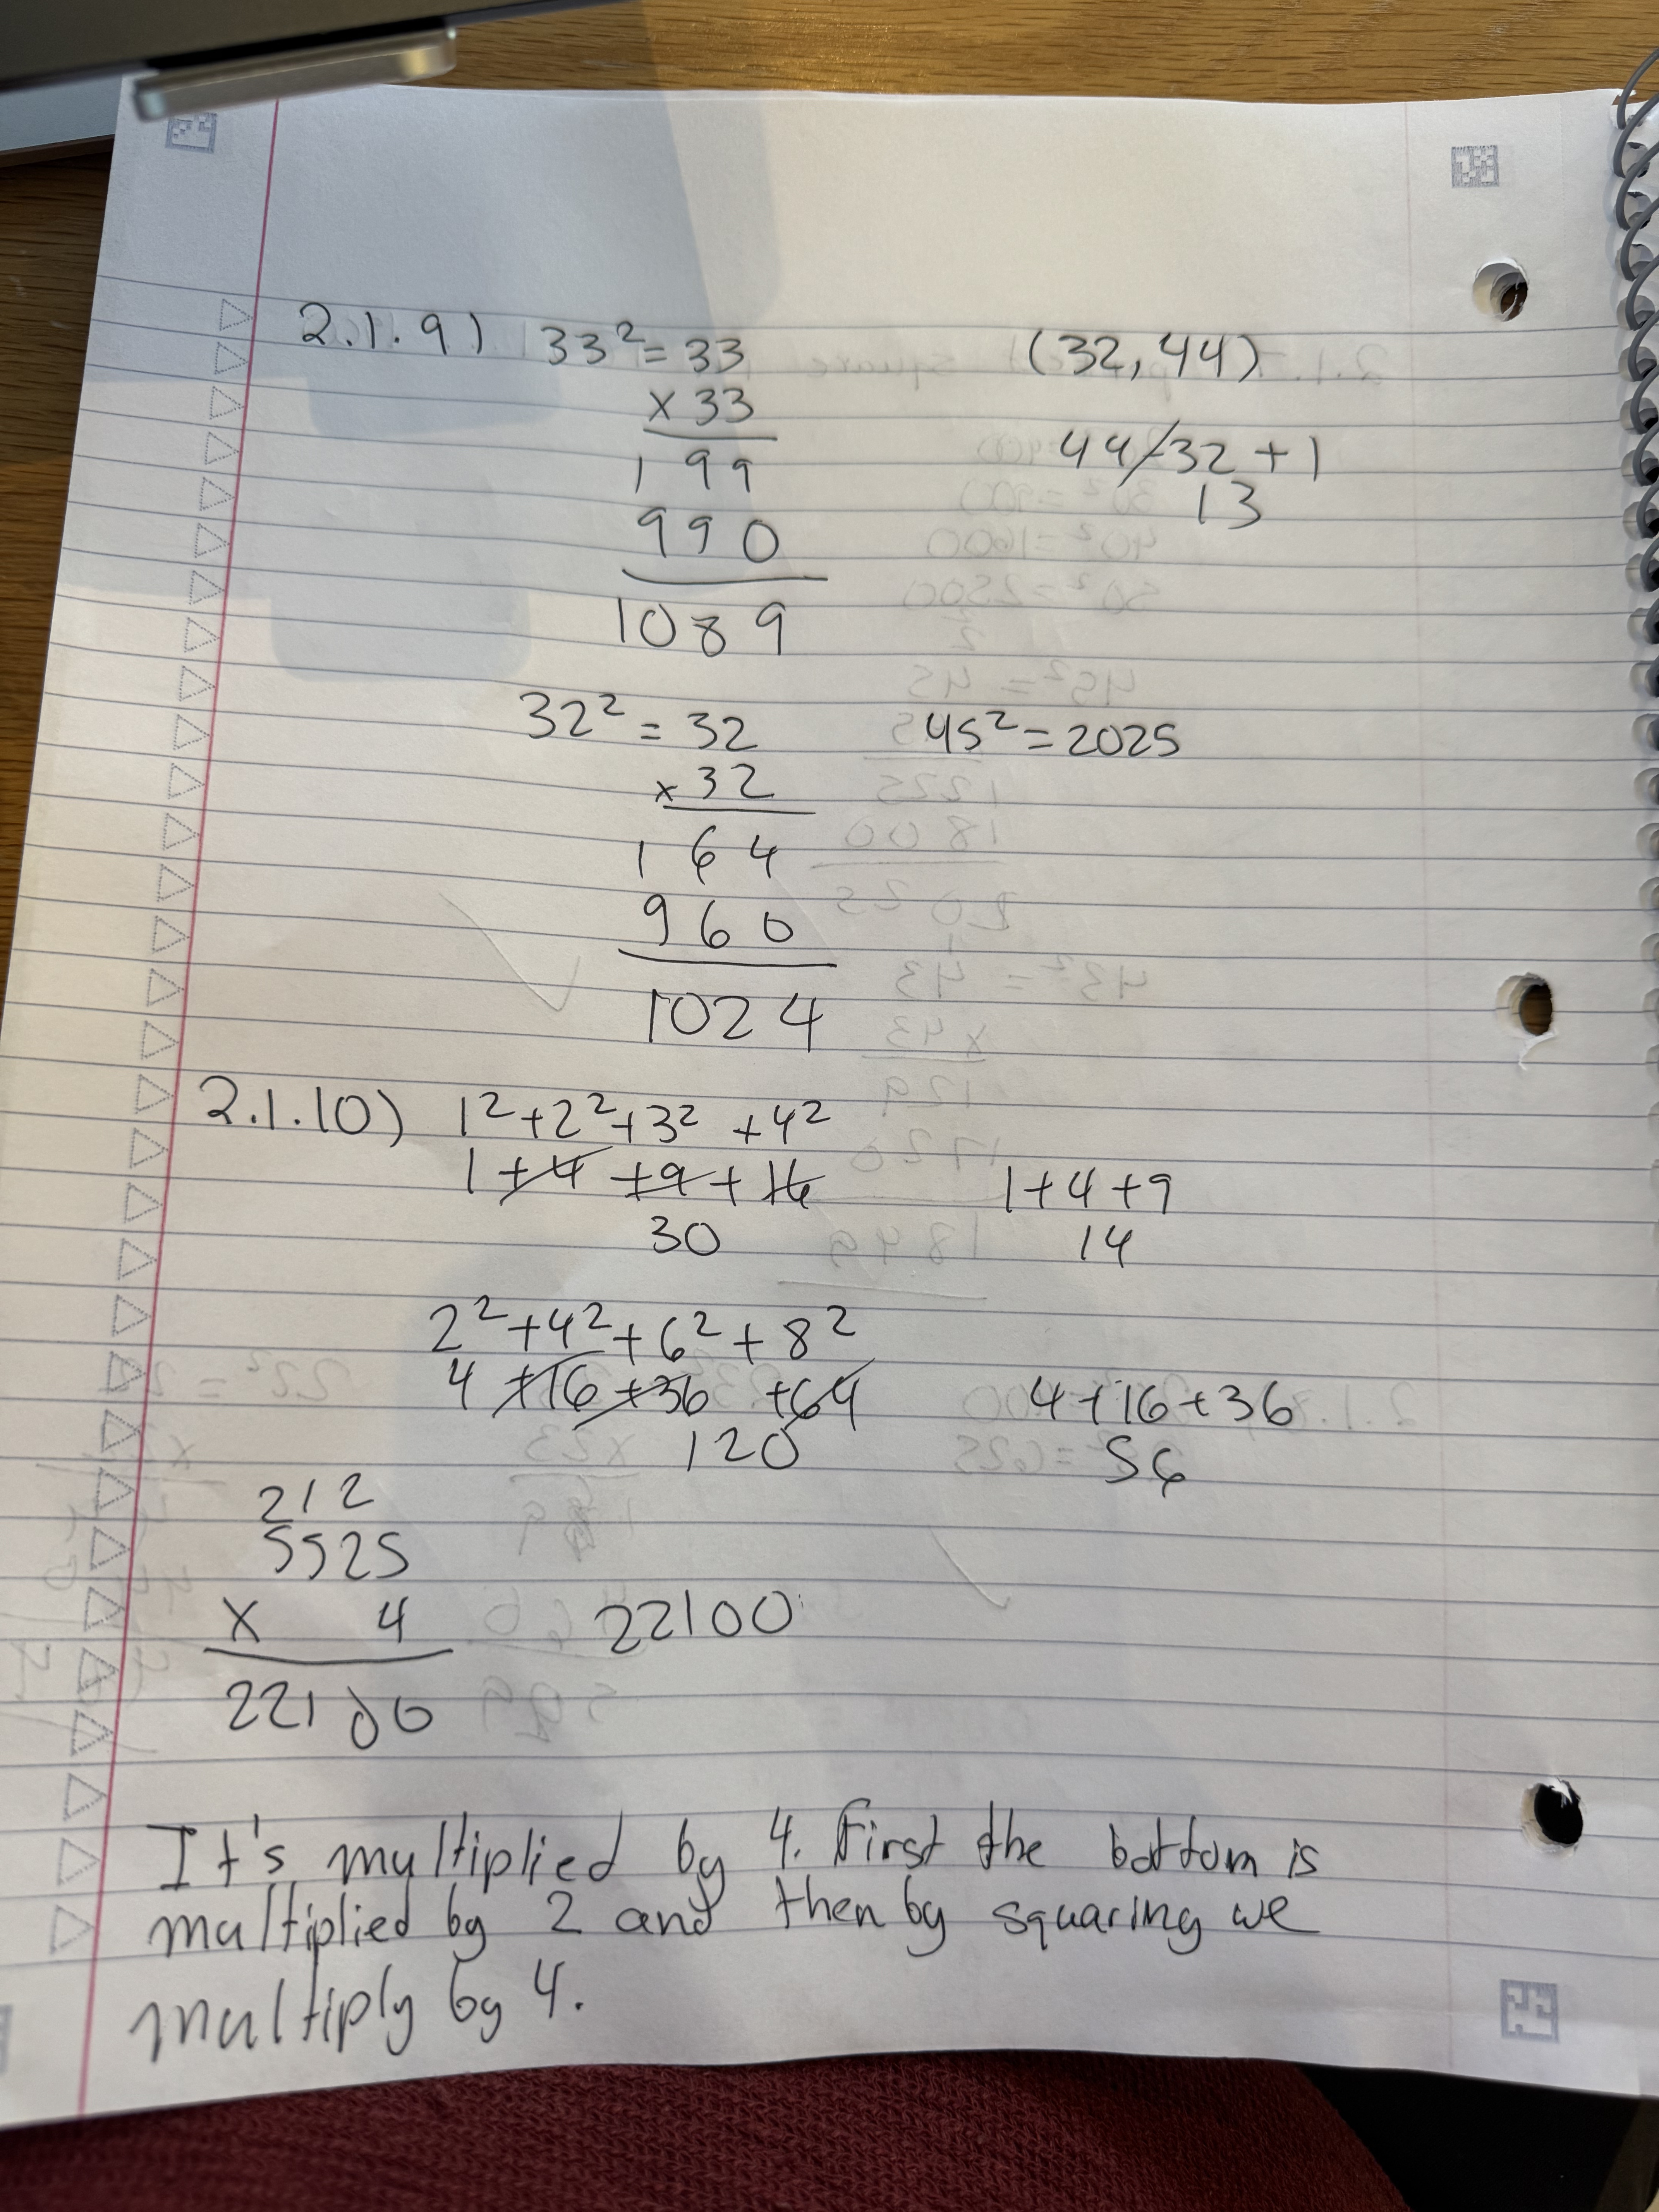 2.1.9) 33² = 33
x 33
1 99
990
1089
(32,44)
44-32+1
13
32² = 32
x 32
1 64
960
1024
45² = 2025
2.1.10) 1²+2²+3²+4²
1+4+9+16
30
1+4+9
14
2²+4²+6²+8²
4+16+36+64
120
4+16+36
56
212
5525
x 4
22100
22100
It's multiplied by 4. First the bottom is
multiplied by 2 and then by squaring we
multiply by 4.